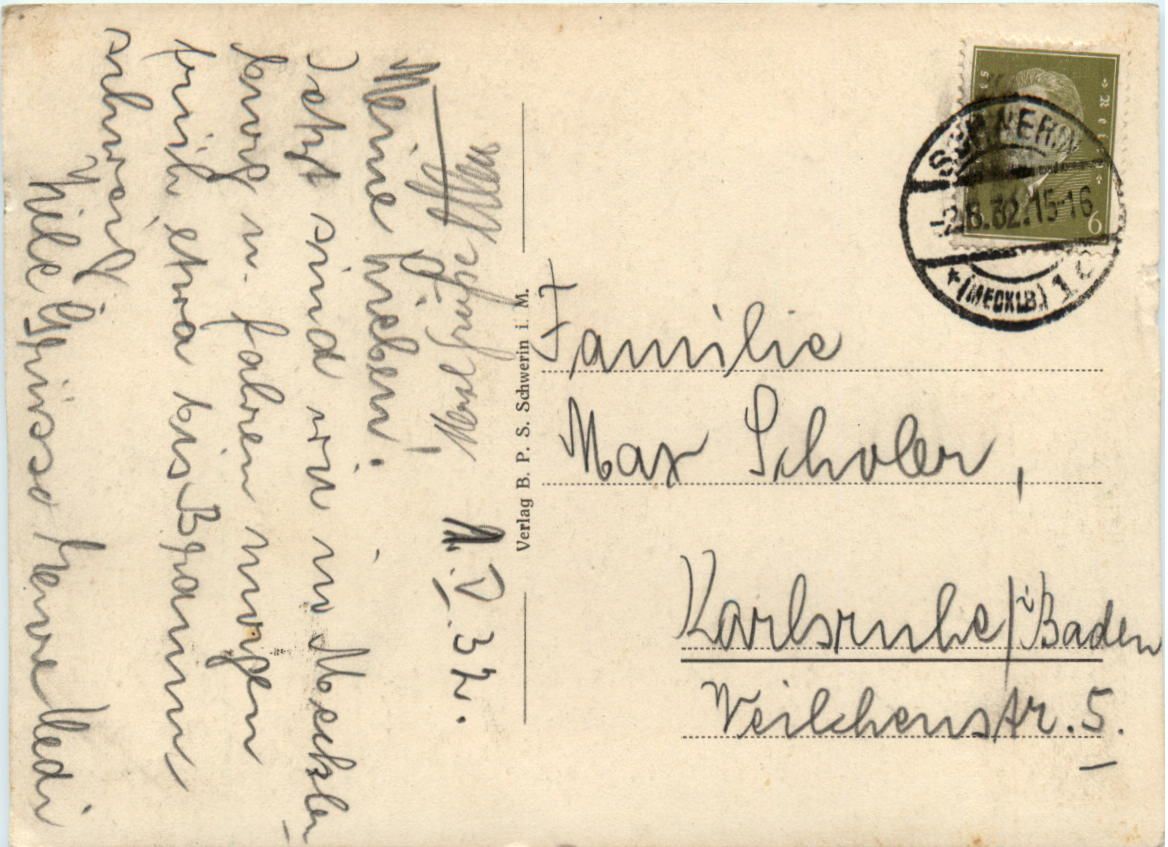 Meine Lieben!
Jetzt sind wir in Mecklen-
burg u. fahren morgen
früh etwa bis Braun-
schweig
Viele Grüsse Eure Hedi
V. 32.
Verlag B. P. S. Schwerin i. M.
SCHWERIN
32.15-16
*(MECKLB.) 1
6
Familie
Max Scholer,
Karlsruhe/i Baden
Veilchenstr. 5.